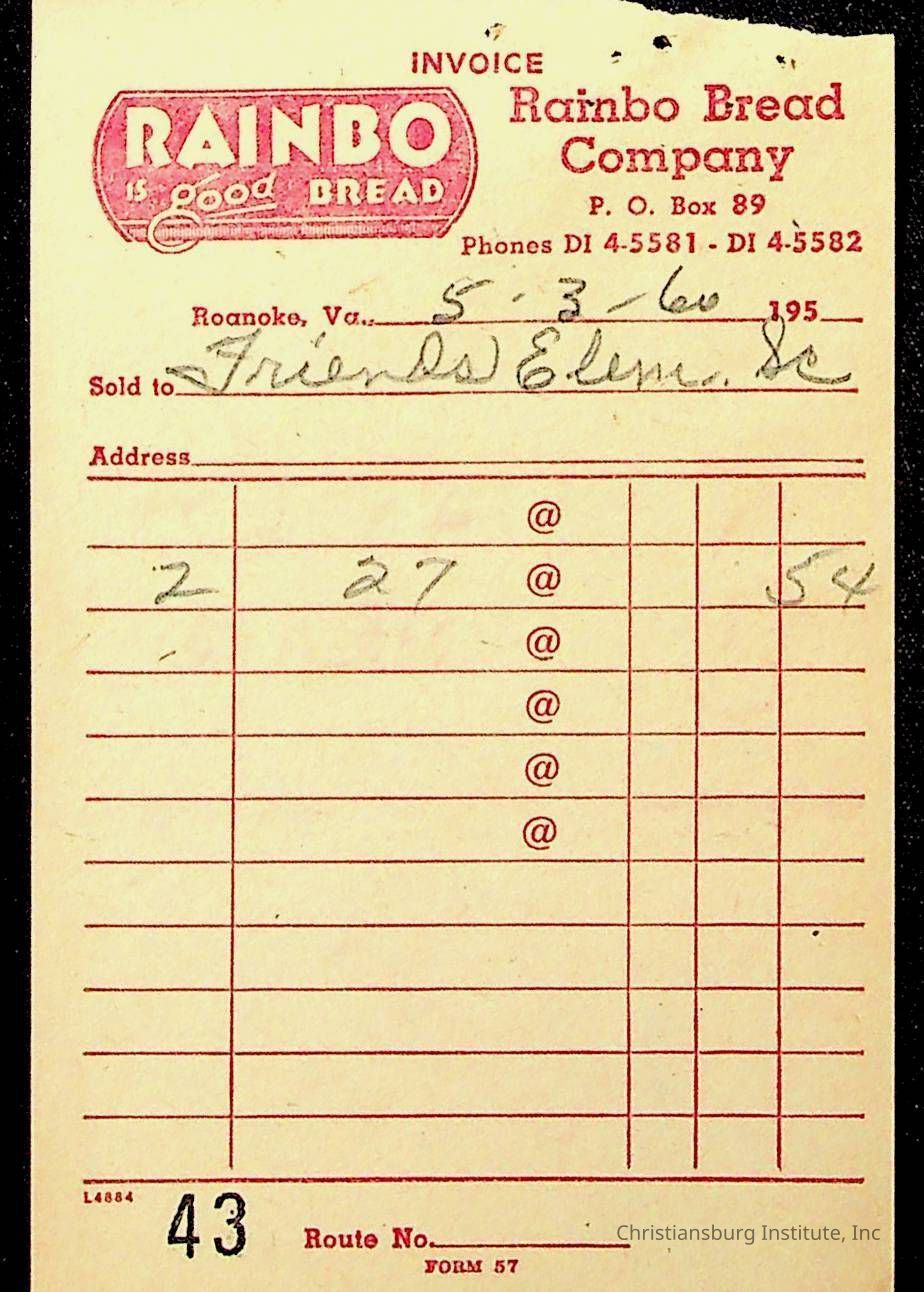 INVOICE
RAINBO
IS good BREAD
Rainbo Bread
Company
P. O. Box 89
Phones DI 4-5581 - DI 4-5582
Roanoke, Va., 5-3-60 195
Sold to Friends Elem. Sc
Address
@
2 27 @ 54
@
@
@
@
L4884
43 Route No.
FORM 57
Christiansburg Institute, Inc